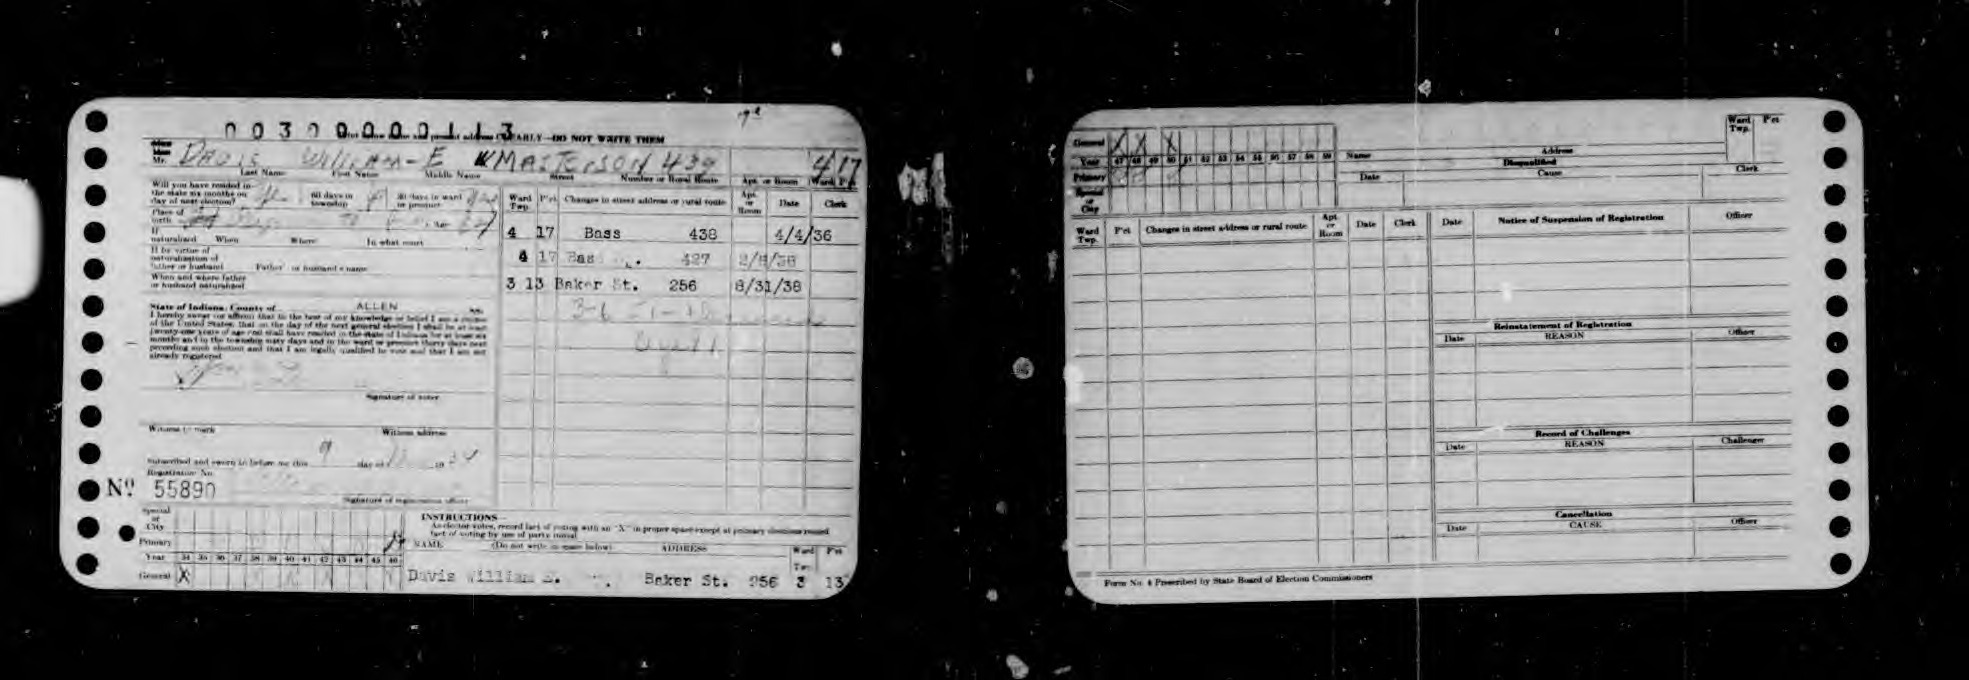 0 0 3 0 0 0 0 0 1 1 3
CLEARLY—DO NOT WRITE THEM
Mr. DAVIS WILLIAM-E W MASTERSON 439 4 17
Last Name First Name Middle Name Street Number or Rural Route Apt. or Room Ward P't
Will you have resided in
the state six months on
day of next election? 60 days in township 30 days in ward or precinct
Place of birth
If naturalized When Where In what court
If by virtue of
naturalization of
father or husband Father or husband's name
When and where father
or husband naturalized
State of Indiana, County of ALLEN ss.
I hereby swear (or affirm) that to the best of my knowledge or belief I am a citizen
of the United States; that on the day of the next general election I shall be at least
twenty-one years of age and shall have resided in the state of Indiana for at least six
months and in the township sixty days and in the ward or precinct thirty days next
preceding such election and that I am legally qualified to vote and that I am not
already registered
Signature of voter
Witness to mark Witness address
Subscribed and sworn to before me this 9 day of 19 34
Registration No.
Nº 55890
Signature of registration officer
Ward Twp. P'ct Changes in street address or rural route Apt. or Room Date Clerk
4 17 Bass 438 4/4/36
4 17 Bass 427 2/8/38
3 13 Baker St. 256 8/31/38
3-6
Special or City
Primary
Year 34 35 36 37 38 39 40 41 42 43 44 45 46
General X
INSTRUCTIONS—
As elector votes, record fact of voting with an "X" in proper space except at primary elections record
fact of voting by use of party initial
NAME (Do not write in space below) ADDRESS Ward Twp. P'ct
Davis William E. Baker St. 256 3 13
General X X X
Year 47 48 49 50 51 52 53 54 55 56 57 58 59
Primary
Special or City
Name Address Ward Twp. P'ct
Disqualified
Date Cause Clerk
Ward Twp. P'ct Changes in street address or rural route Apt. or Room Date Clerk
Date Notice of Suspension of Registration Officer
Reinstatement of Registration
Date REASON Officer
Record of Challenges
Date REASON Challenger
Cancellation
Date CAUSE Officer
Form No. 4 Prescribed by State Board of Election Commissioners